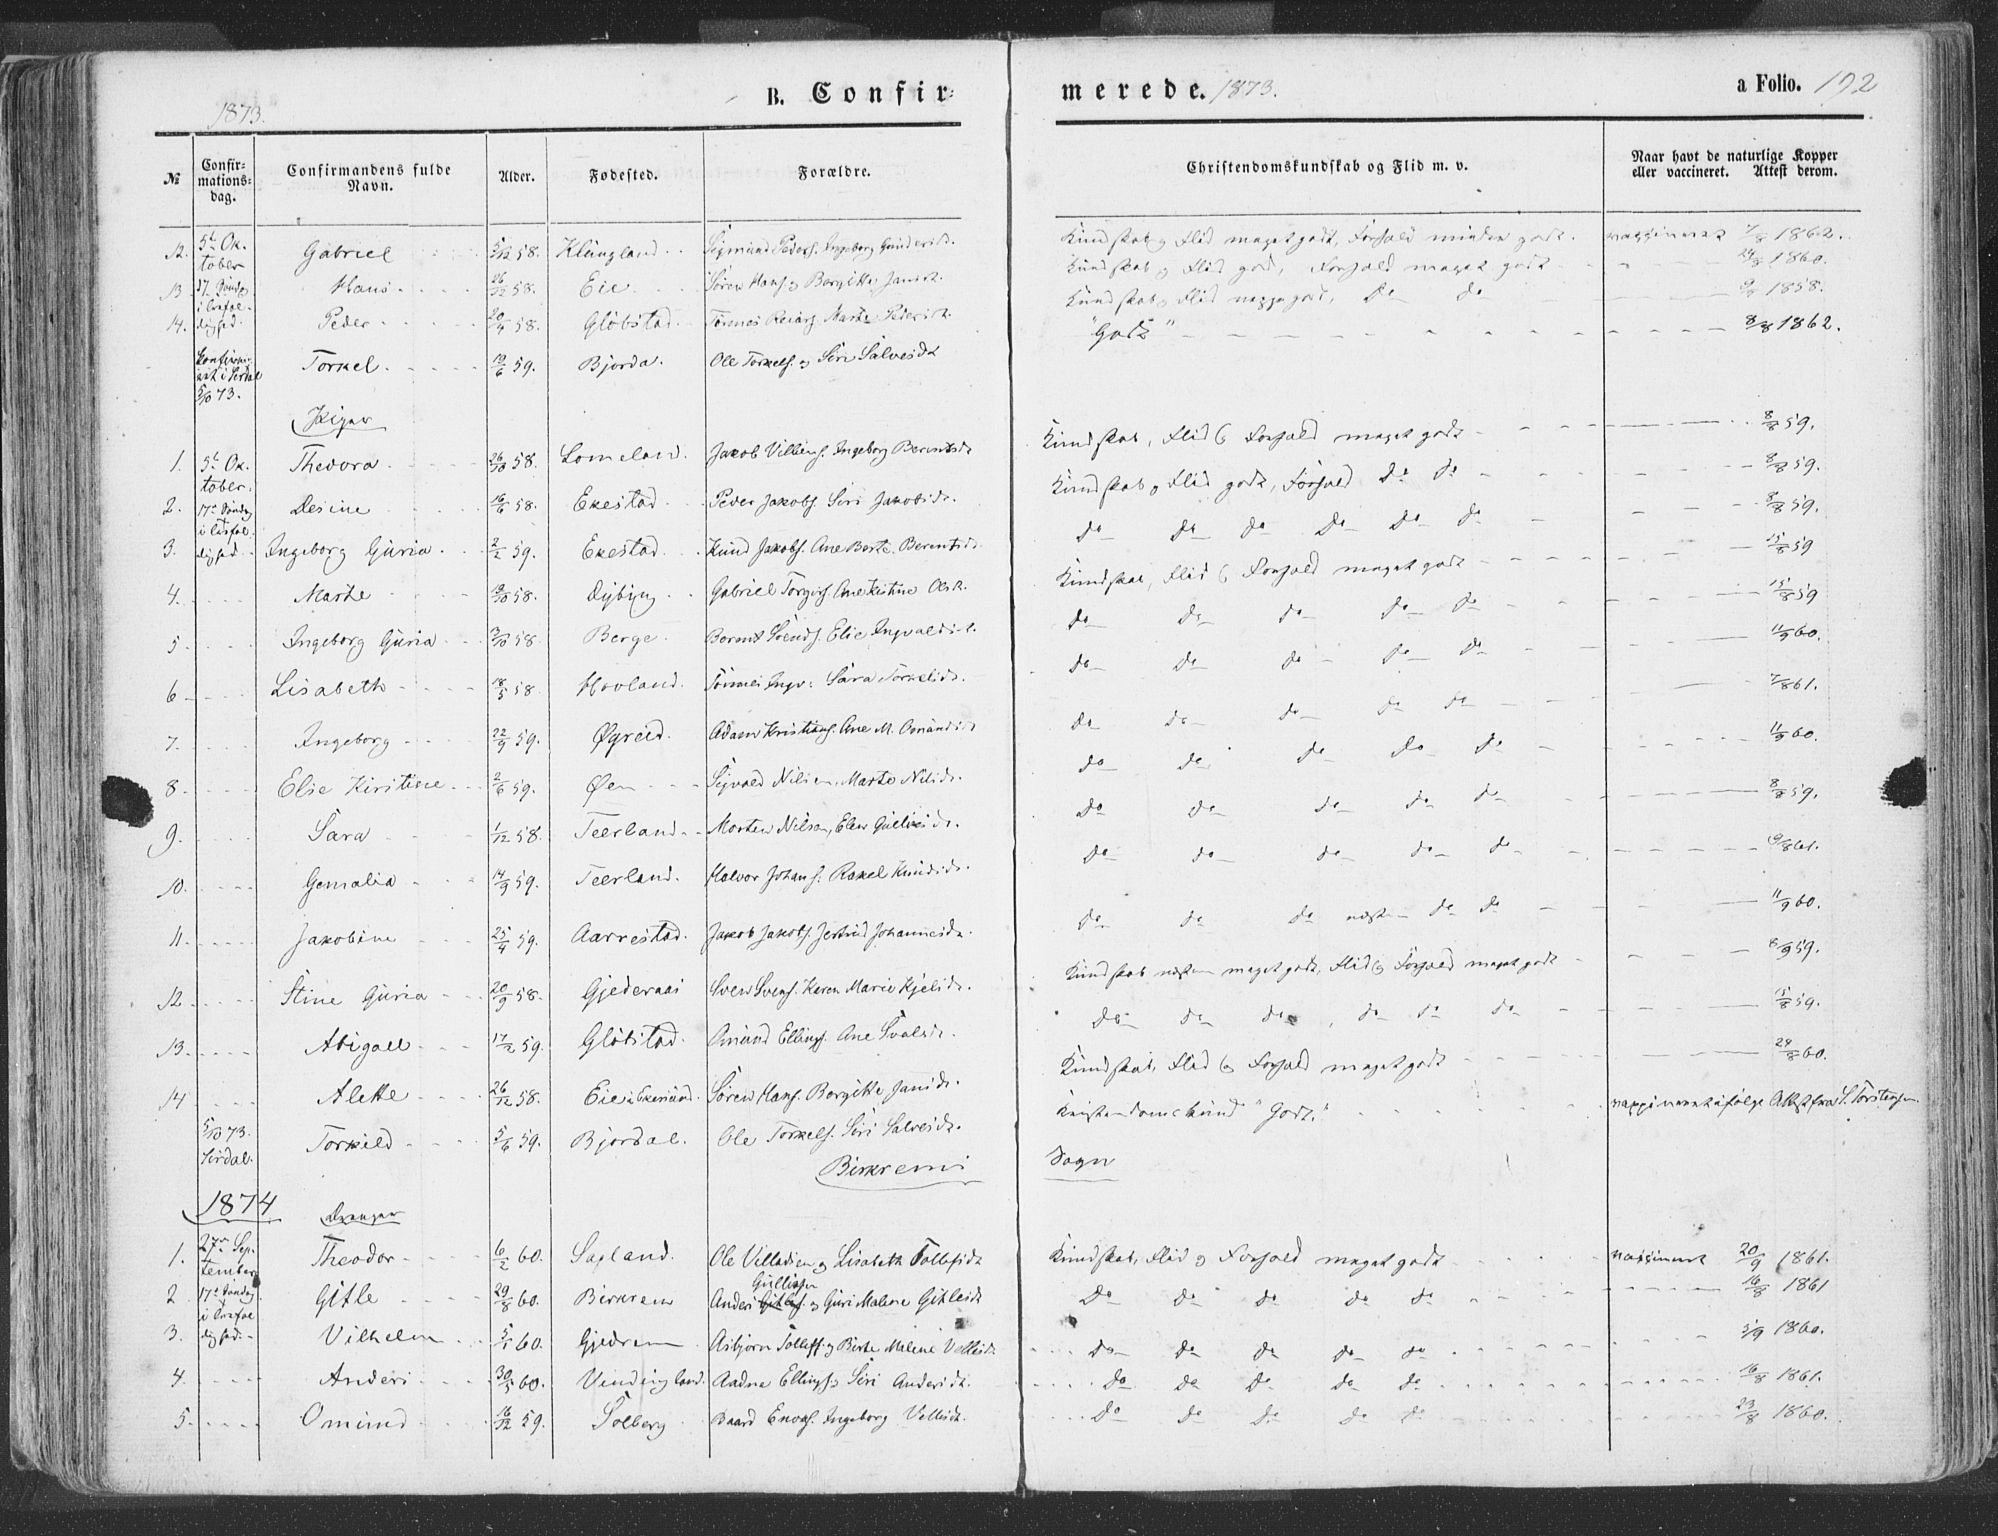 1873.
B. Confir-
merede. 1873.
a Folio. 192
№ Confirmations-dag. Confirmandens fulde Navn. Alder. Fødested. Forældre. Christendomskundskab og Flid m. v. Naar havt de naturlige Kopper eller vaccineret. Attest derom.
12. 5t Ok- Gabriel 5/12 58. Klungland. Kundskab og Flid meget godt, Forhold minder godt. vaccineret 1862.
tober
13 17 Søndag Hans 26/12 58. Eie Søren Hans. og Borgitte Janidt. Kundskab og Flid god, Forhold meget godt 24/8 1860.
i Trefol-
14. dighed. Peder 20/4 58. Gløbstad. Kundskab og Flid godt, Do Do 1858.
Torkel 19/6 59. Bjorda. Ole Torkels. og Siri Salvesdt "Godt" 8/8 1862.
Konfirmert i Sirdal
5/10 73.
Piger
1. 5t Ok- Thedora 26/10 58. Lomeland. Jakob Villums. Ingeborg Berentsdt Kundskab, Flid og Forhold meget godt 8/8 59.
tober.
2. 17de Søndag Desine 16/6 58. Ekestad Peder Jakobs. Siri Jakobsdt. Kundskab og Flid godt, Forhold Do Do 8/8 59.
i Trefol-
3. dighed Ingeborg Guria 2/2 59. Ekestad. Knud Jakobs. Ane Berte Berentsdt. Do Do Do Do Do Do 8/8 59.
4. Marte 19/10 58. Dybing Gabriel Torgers. Ane Kistine Olsdt. Kundskab, Flid og Forhold meget godt 15/8 59
5 Ingeborg Guria 58. Berge. Berent Svends. Elie Ingvaldsdt. Do Do Do Do Do 15/8 59
6 Lisabeth 18/5 58. Hovland. Tønnes Ingv: Sara Torkelsdt. Do Do Do Do Do 11/9 60.
7. Ingeborg 22/9 59. Øgreid. Adam Kristians. Ane M. Omundsdt Do Do Do Do Do 7/8 61.
8 Elie Kiristine 2/6 59. Øen Sigvald Nilsen, Marte Nilsdt. Do Do Do Do Do 11/9 60.
9. Sara 1/12 58. Teerland Morten Nilsen, Elen Gullikdt. Do Do Do Do Do 8/8 59.
10. Gemalia 14/9 59. Teerland. Halvor Johans. Rakel Knudsdt. Do Do Do Do Do 9/8 61.
11. Jakobine 25/4 59. Aarrestad. Jakob Jakobs. Jertrud Johannesdt. Do Do Do næsten Do Do 11/9 60.
12 Stine Guria 20/9 58. Gjedernæs Sven Svens. Karen Marie Kjelsdt. Kundskab næsten meget godt, Flid og Forhold meget godt 8/9 59.
13. Abigael 17/2 59. Gløbstad. Omund Ellings. Ane Svalsdt. Do Do Do, Do Do Do 15/8 59.
14 Alette 26/12 58. Eie i Ekersund. Søren Hans. Borgitte Jansdt. Kundskab, Flid og Forhold meget godt 24/8 60.
5/10 73. Torkild 5/6 59. Bjordal. Ole Torkels. Siri Salvesdt. Kristendomskund "Godt." vaccineret ifølge Attest fra S. Torstensen.
Sirdal.
Birkrems Sogn
1874 Drenger
1. 27de Sep- Theodor 6/2 60. Sagland. Ole Villadsen og Lisabeth Tollefsdt Kundskab, Flid og Forhold meget godt vaccineret 20/9 1861.
tember
Gullissen
2 17de Søndag Gitle 29/8 60. Birkrem Anders Gitles. og Guri Malene Gitlesdt Do Do Do Do Do 16/8 1861
i Trefol-
3. dighed. Vilhelm 5/1 60. Gjedrem Asbjørn Tollefs. og Birte Malene Vellesdt Do Do Do Do Do 5/9 1860.
4. Anders 30/5 60. Vindingland. Aadne Ellings. og Siri Andersdt. Do Do Do Do Do 16/8 1861.
5. Omund 16/12 59. Solberg Baard Enoks. Ingeborg Vellesdt. Do Do Do Do Do 23/8 1860.